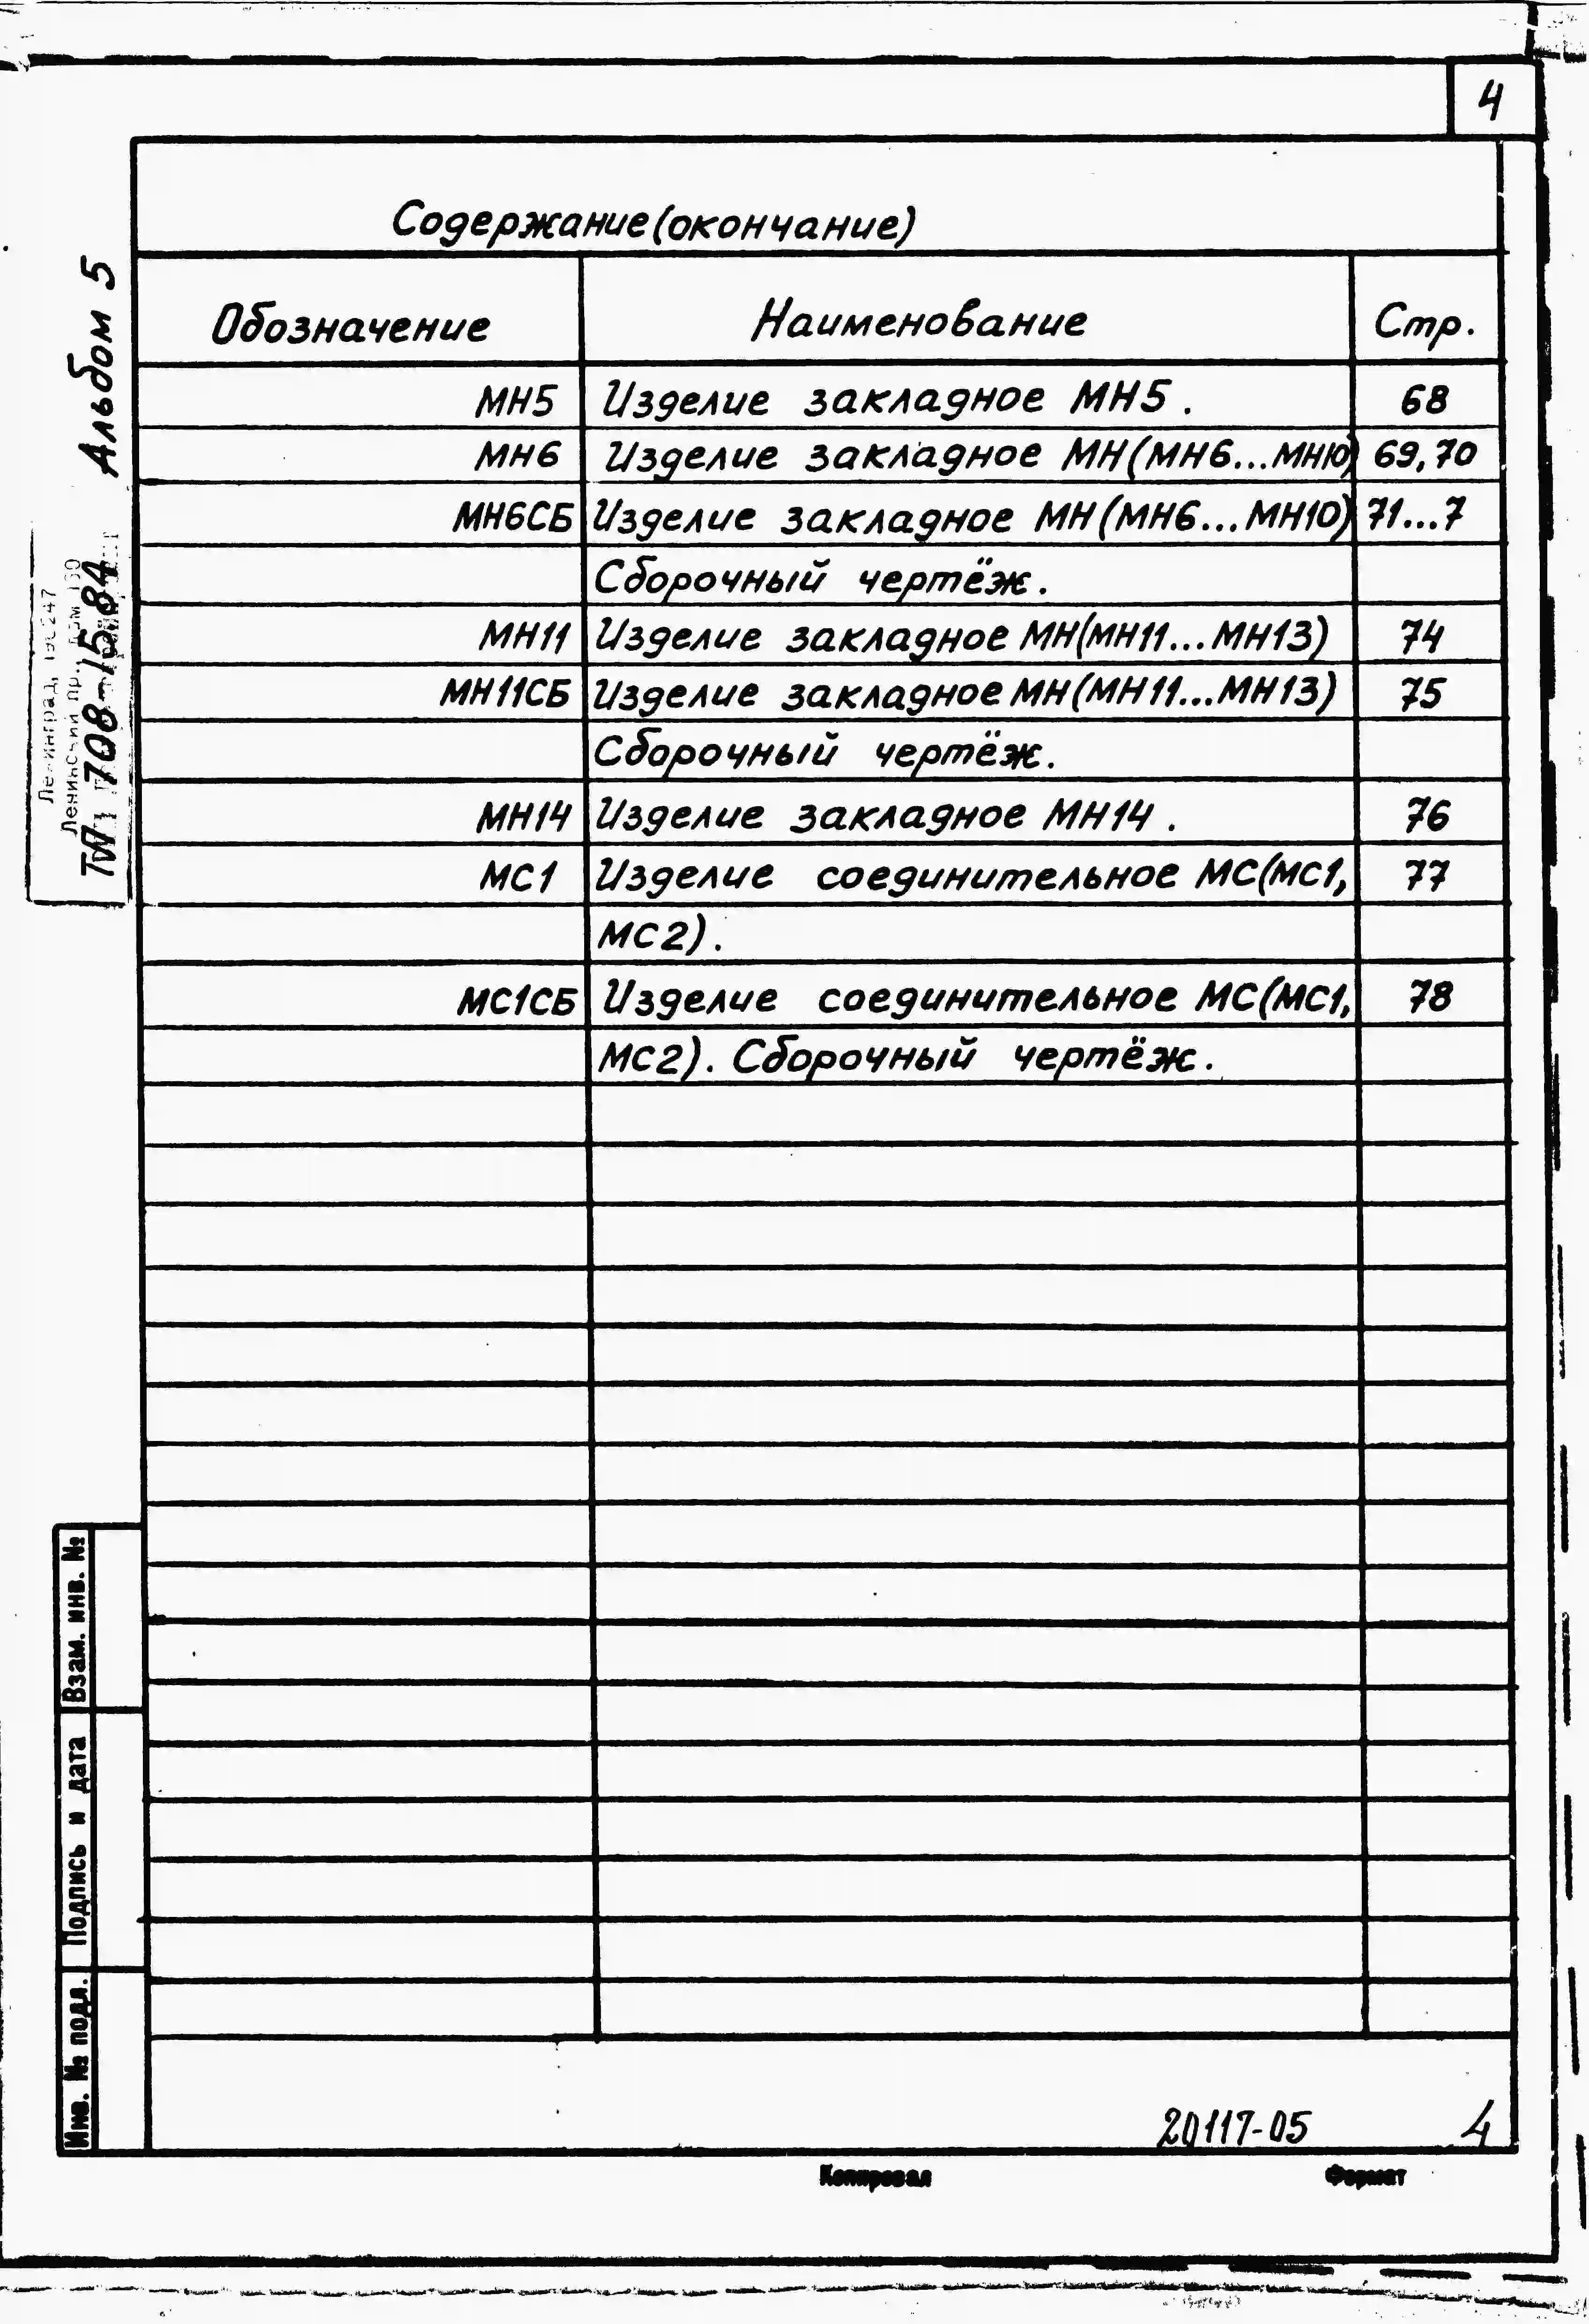 4
Содержание (окончание)
Обозначение Наименование Стр.
МН5 Изделие закладное МН5. 68
МН6 Изделие закладное МН(МН6...МН10) 69,70
МН6СБ Изделие закладное МН(МН6...МН10) 71...7
Сборочный чертёж.
МН11 Изделие закладное МН(МН11...МН13) 74
МН11СБ Изделие закладное МН(МН11...МН13) 75
Сборочный чертёж.
МН14 Изделие закладное МН14. 76
МС1 Изделие соединительное МС(МС1, 77
МС2).
МС1СБ Изделие соединительное МС(МС1, 78
МС2). Сборочный чертёж.
Альбом 5
708-15.84
Ленинский пр.,
Взам. инв. №
Подпись и дата
Инв. № подл.
20117-05 4
Копировал Формат